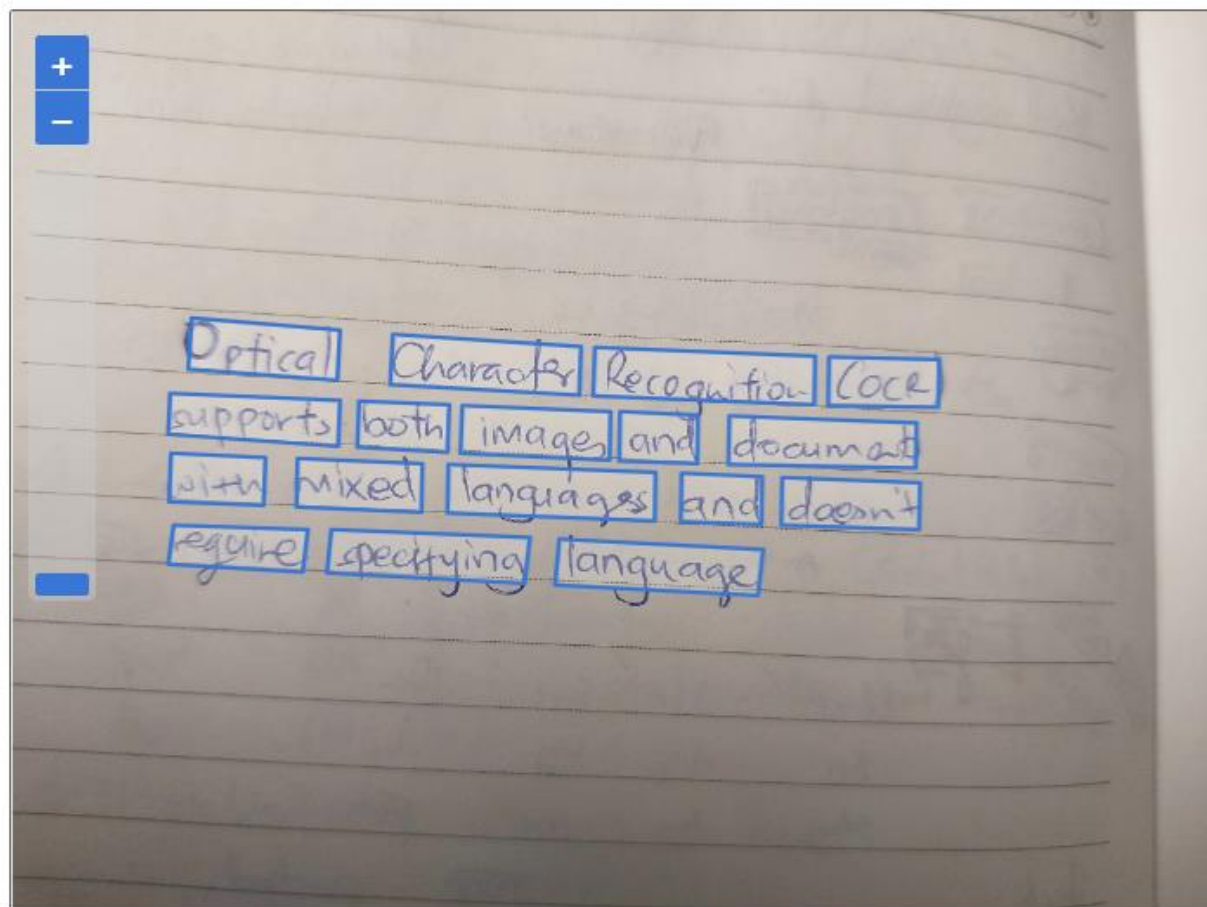 Optical Character Recognition (OCR
supports both images and document
with mixed languages and doesn't
require specifying language